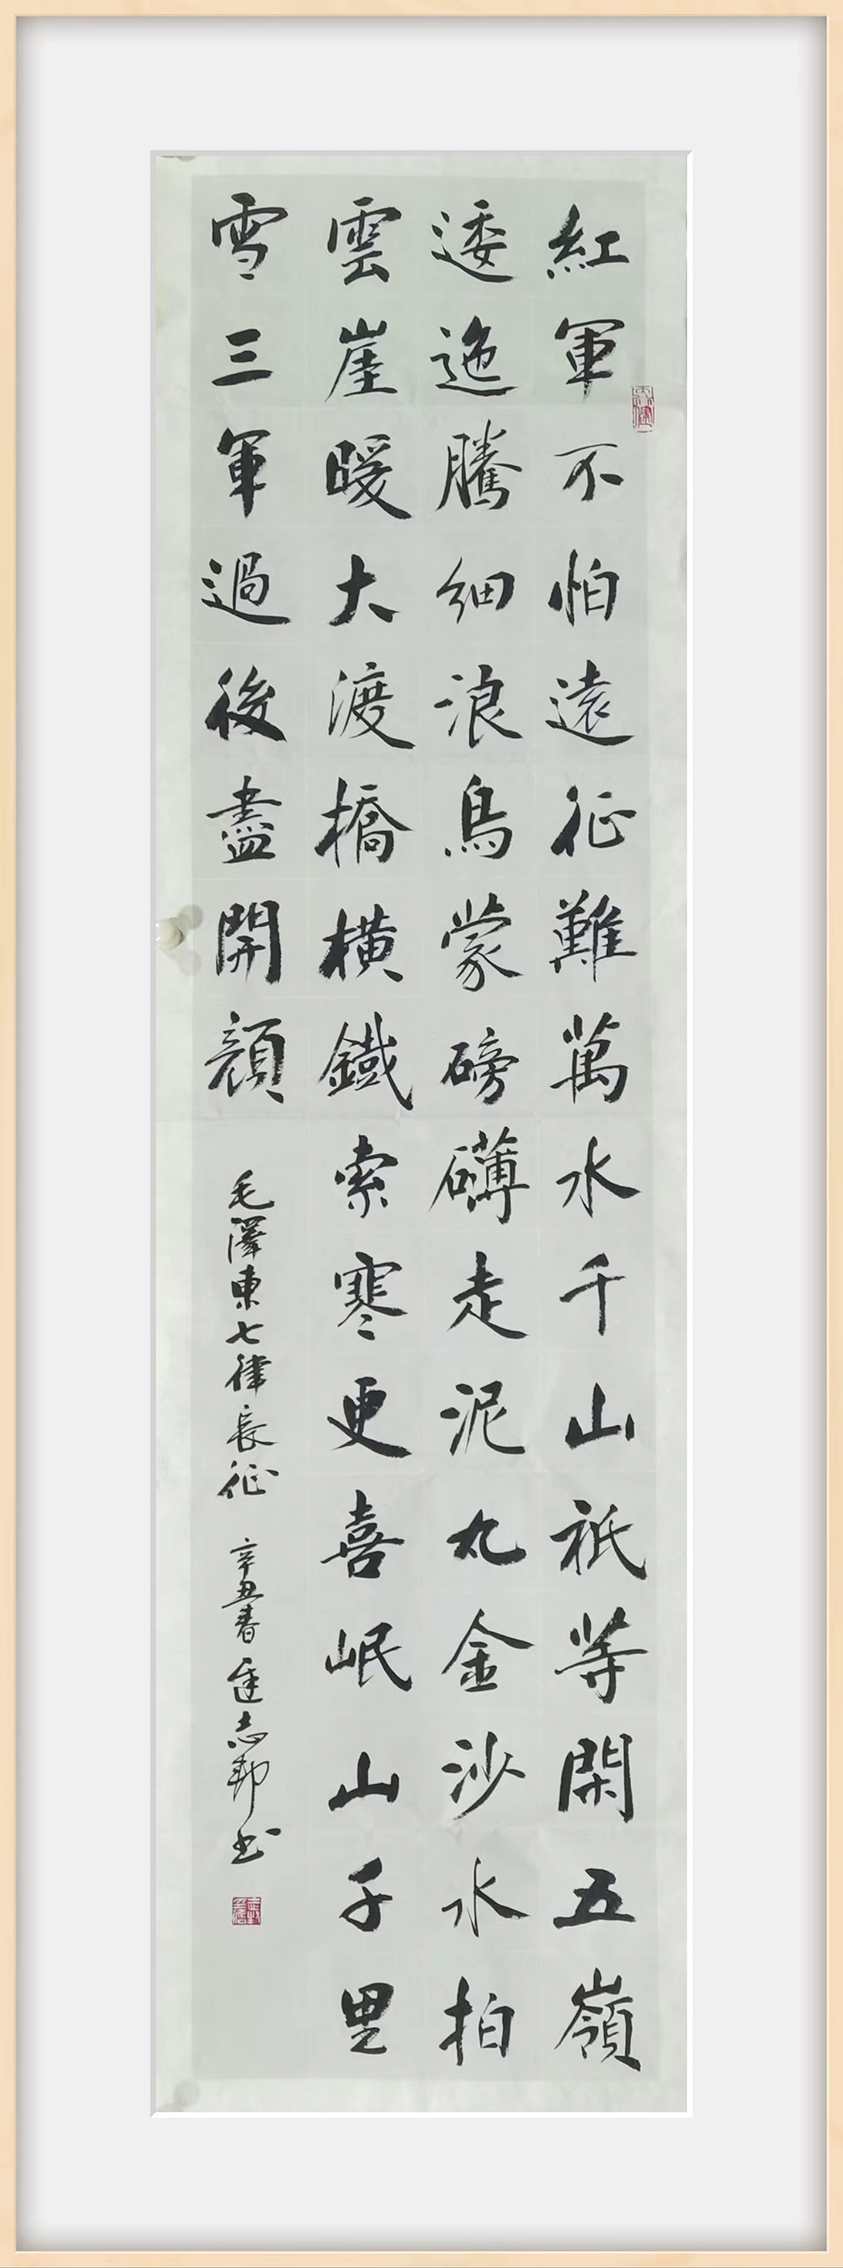 紅軍不怕遠征難萬水千山祇等閑五嶺
逶迤騰細浪烏蒙磅礴走泥丸金沙水拍
雲崖暖大渡橋橫鐵索寒更喜岷山千里
雪三軍過後盡開顏
毛澤東七律長征 辛丑春 志邦书